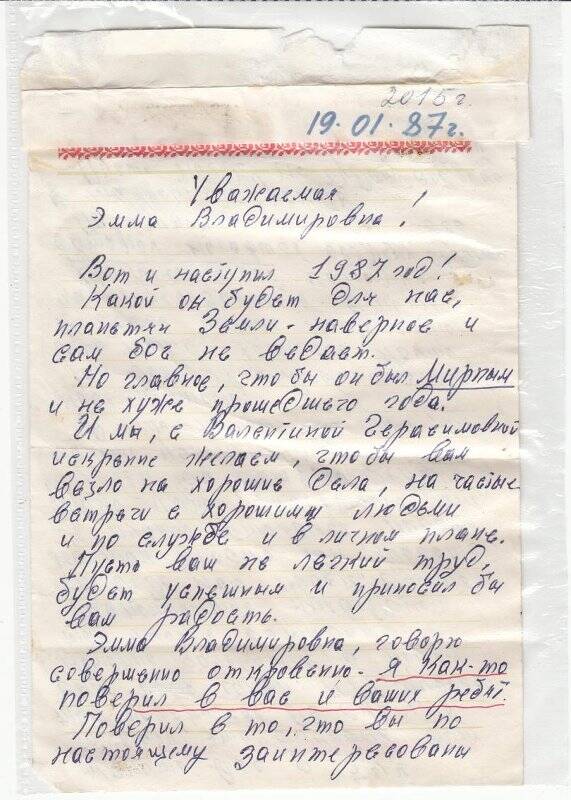 2015г.
19.01.87г.
Уважаемая
Эмма Владимировна!
Вот и наступил 1987 год!
Какой он будет для нас,
планетян Земли - наверное и
сам бог не ведает.
Но главное, что бы он был Мирным
и не хуже прошедшего года.
И мы, с Валентиной Герасимовной
искренне желаем, что бы вам
везло на хорошие дела, на частые
встречи с хорошими людьми
и по службе и в личном плане.
Пусть ваш не легкий труд,
будет успешным и приносил бы
вам радость.
Эмма Владимировна, говорю
совершенно откровенно - я как-то
поверил в вас и ваших ребят.
Поверил в то, что вы по
настоящему заинтересованы